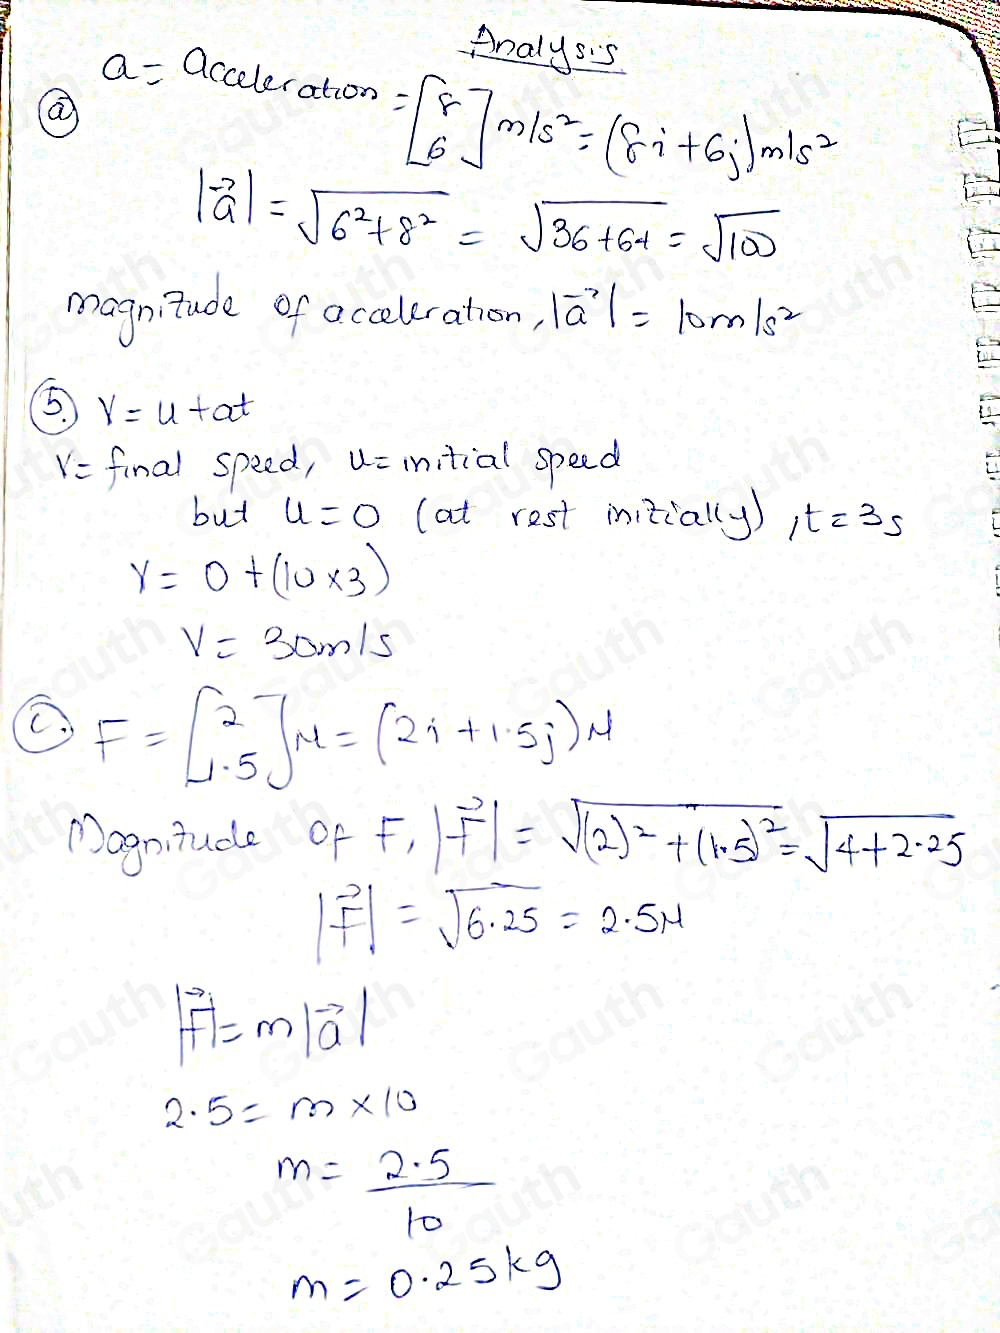 Analysis
a = Acceleration = [8 6] m/s² = (8i + 6j) m/s²
(a)
|a⃗| = √6² + 8² = √36 + 64 = √100
magnitude of acceleration, |a⃗| = 10m/s²
(5.) V = u + at
V = final speed, u = initial speed
but u = 0 (at rest initially), t = 3s
V = 0 + (10 × 3)
V = 30m/s
(c.) F = [2 1.5] N = (2i + 1.5j) N
Magnitude of F, |F⃗| = √(2)² + (1.5)² = √4 + 2.25
|F⃗| = √6.25 = 2.5N
|F⃗| = m|a⃗|
2.5 = m × 10
m = 2.5
10
m = 0.25kg